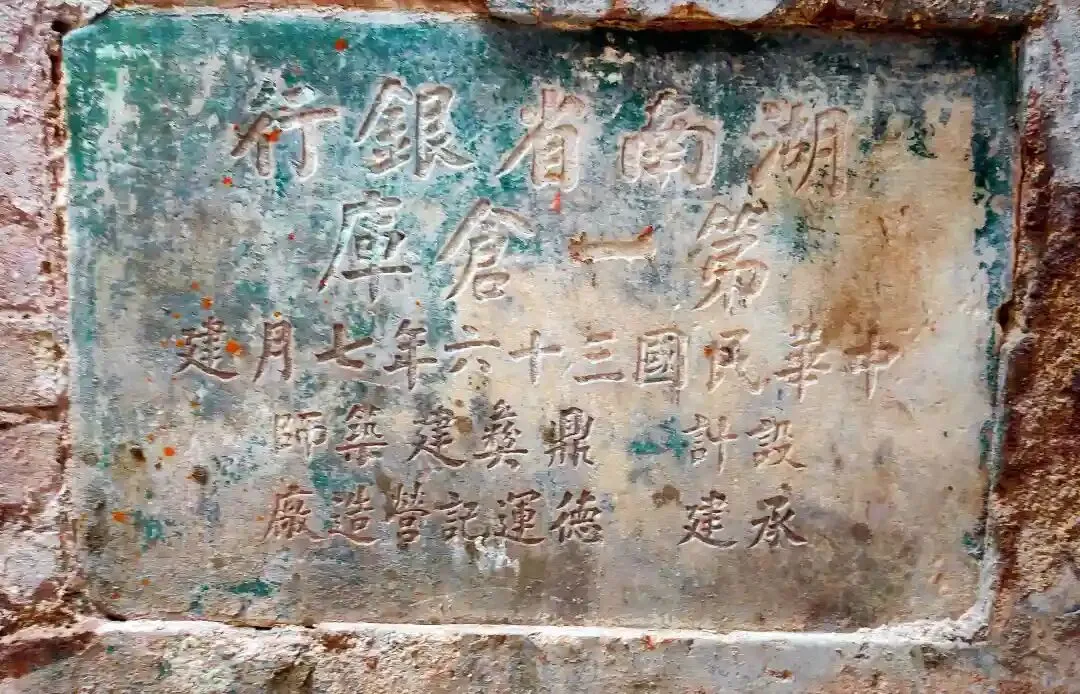 湖南省銀行
第一倉庫
中華民國三十六年七月建
設計 鼎彝建築師
承建 德運記營造廠